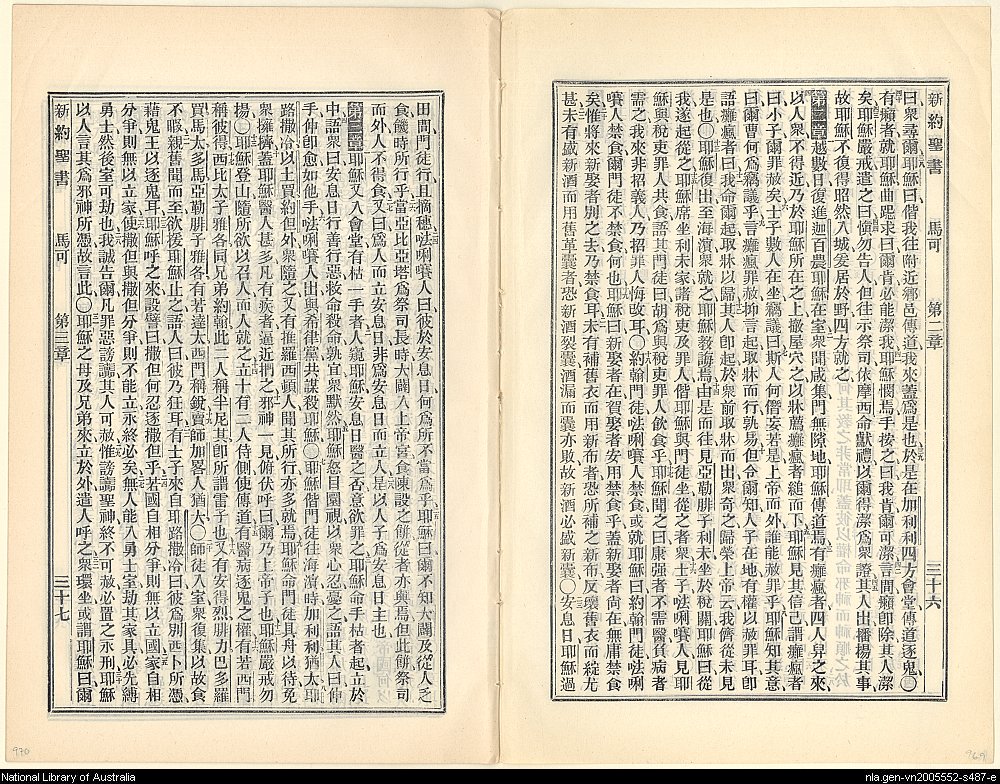 新約聖書 馬可 第二章 三十六
曰衆尋爾耶穌曰偕我往附近鄉邑傳道我來蓋爲是也於是在加利利四方會堂傳道逐鬼〇
有癩者就耶穌曲跽求曰爾肯必能潔我耶穌憫焉手按之曰我肯爾可潔言間癩即除其人潔
矣耶穌嚴戒遣之曰愼勿告人但往示祭司依摩西命獻禮以爾得潔爲衆證其人出播揚其事
故耶穌不復得昭然入城爰居於野四方就之
第二章越數日復進迦百農耶穌在室衆聞咸集門無隙地耶穌傳道焉有癱瘋者四人舁之來
以人衆不得近乃於耶穌所在之上撤屋穴之以牀薦癱瘋者縋而下耶穌見其信己謂癱瘋者
曰小子爾罪赦矣士子數人在坐竊議曰斯人何僭妄若是上帝而外誰能赦罪乎耶穌知其意
曰爾曹何爲竊議乎言癱瘋罪赦抑言起取牀而行孰易但令爾知人子在地有權以赦罪耳即
語癱瘋者曰我命爾起取牀以歸其人即起於衆前取牀而出衆奇之歸榮上帝云我儕從未見
是也〇耶穌復出至海濱衆就之耶穌教誨焉由是而往見亞勒腓子利未坐於稅關耶穌曰從
我遂起從之耶穌席坐利未家諸稅吏及罪人偕耶穌與門徒坐從之者衆士子𠵽唎㘔人見耶
穌與稅吏罪人共食語其門徒曰胡爲與稅吏罪人飲食乎耶穌聞之曰康强者不需醫負病者
需之我來非招義人乃招罪人悔改耳〇約翰門徒𠵽唎㘔人禁食或就耶穌曰約翰門徒𠵽唎
㘔人禁食爾門徒不禁食何也耶穌曰新娶者在賀娶者安用禁食乎蓋新娶者尙在無庸禁食
矣惟將來新娶者別之去乃禁食耳未有補舊衣而用新布者恐所補之新布反壞舊衣而綻尤
甚未有盛新酒而用舊革囊者恐新酒裂囊酒漏而囊亦敗故新酒必盛新囊〇安息日耶穌過
田間門徒行且摘穗𠵽唎㘔人曰彼於安息日何爲所不當爲乎耶穌曰爾不知大闢及從人乏
食饑時所行乎當亞比亞塔爲祭司長時大闢入上帝宮食陳設之餅從者亦與焉但此餅祭司
而外人不得食又曰爲人而立安息日非爲安息日而立人是以人子爲安息日主也
第三章耶穌又入會堂有枯一手者人窺耶穌安息日醫之否意欲罪之耶穌命手枯者起立於
中語衆曰安息日行善行惡救命殺命孰宜衆默然耶穌怒目圜視以衆心忍憂之語其人曰伸
手伸即愈如他手𠵽唎㘔人出與希律黨共謀殺耶穌〇耶穌偕門徒往海濱時加利利猶太耶
路撒冷以土買約但外衆隨之又有推羅西頓人聞其所行亦多就焉耶穌命門徒具舟以待免
衆擁擠蓋耶穌醫人甚多凡有疾者逼近捫之邪神一見俯伏呼曰爾乃上帝子也耶穌嚴戒勿
揚〇耶穌登山隨所欲以召人而人就之立十有二人侍側使傳道有醫病逐鬼之權有若西門
稱彼得西比太子雅各同兄弟約翰此二人稱半尼其即所謂雷子也又有安得烈腓力巴多羅
買馬太多馬亞勒腓子雅各有若達太西門稱銳賣師加畧人猶大〇師徒入室衆復集以故食
不暇親舊聞而至欲援耶穌止之語人曰彼乃狂耳有士子來自耶路撒冷曰彼爲別西卜所憑
藉鬼王以逐鬼耳耶穌呼之來設譬曰撒但何忍逐撒但乎若國自相分爭則無以立國家自相
分爭則無以立家使撒但與撒但分爭則不能立永終必矣無人能入勇士室劫其家具必先縛
勇士然後室可劫也我誠告爾凡罪惡謗讟其人可赦惟謗讟聖神終不可赦必置之永刑耶穌
以人言其爲邪神所憑故言此〇耶穌之母及兄弟來立於外遣人呼之衆環坐或謂耶穌曰爾
新約聖書 馬可 第三章 三十七
970
969
National Library of Australia
nla.gen-vn2005552-s487-e